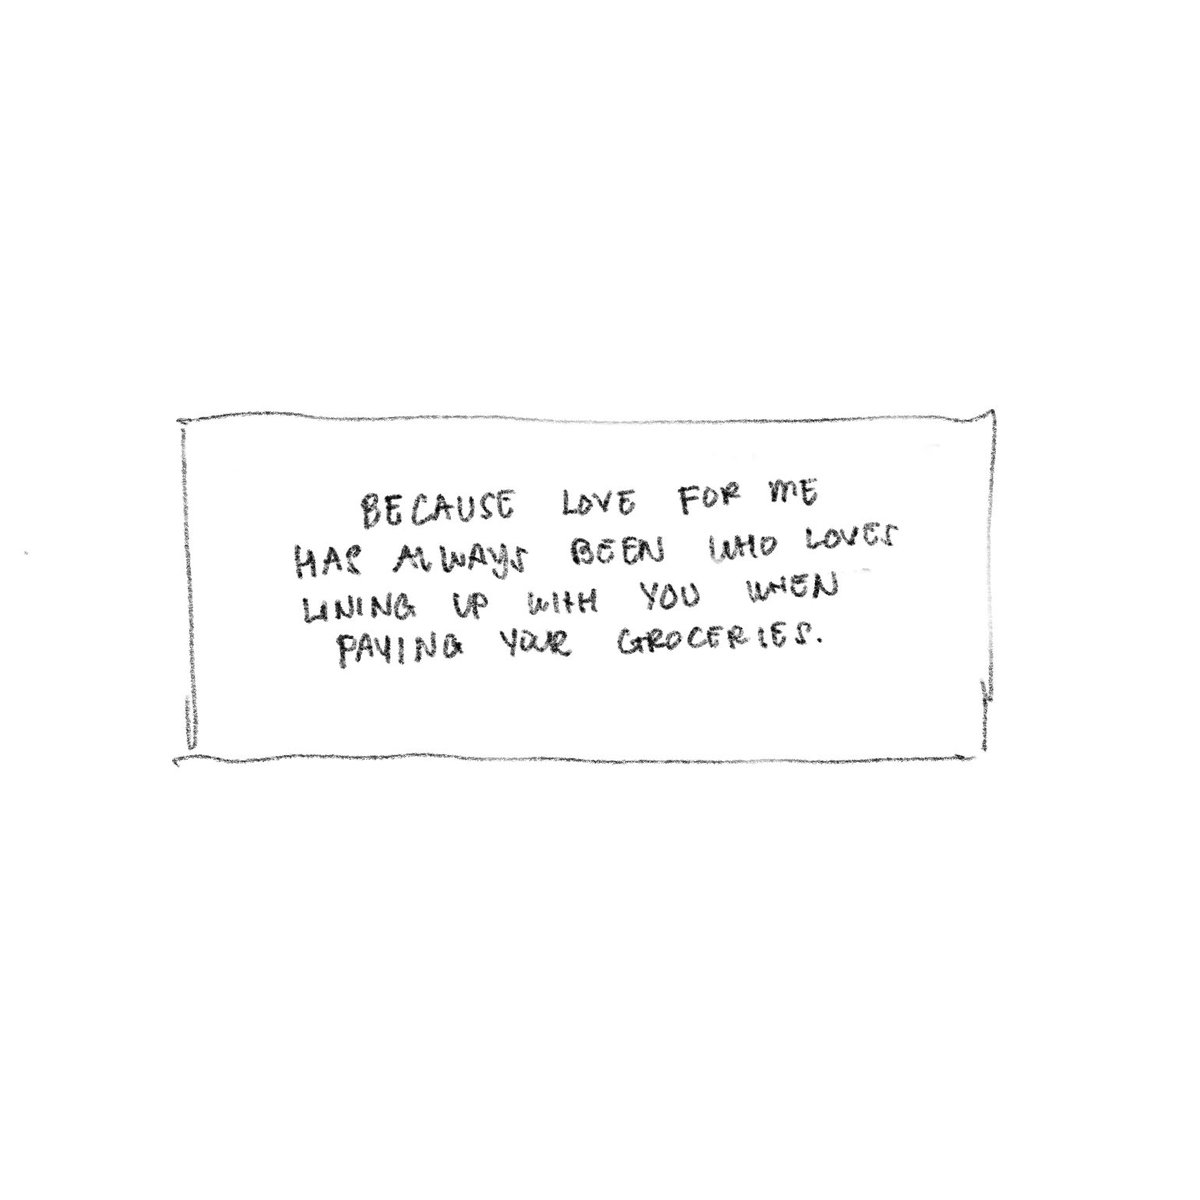 BECAUSE LOVE FOR ME
HAS ALWAYS BEEN WHO LOVES
LINING UP WITH YOU WHEN
PAYING YOUR GROCERIES.